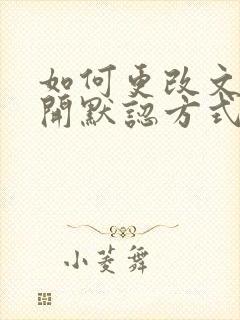 如何更改文
開默認方式
小菱舞